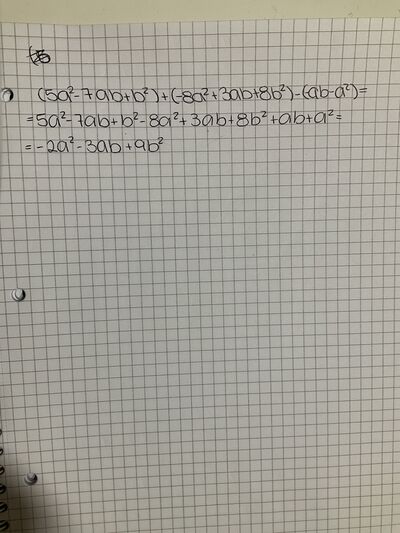 (5a²-7ab+b²)+(-8a²+3ab+8b²)-(ab-a²)=
=5a²-7ab+b²-8a²+3ab+8b²+ab+a²=
=-2a²-3ab+9b²